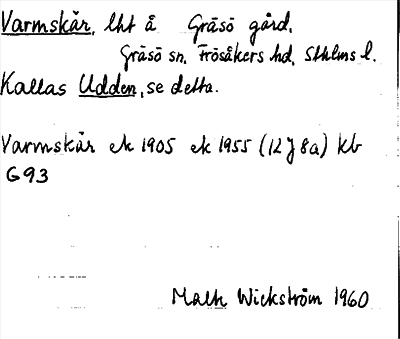 Varmskär, lht å Gräsö gård,
Gräsö sn, Frösåkers hd, Sthlms l.
Kallas Udden, se detta.
Varmskär ek 1905 ek 1955 (12J 8a) kb
G93
Math Wickström 1960